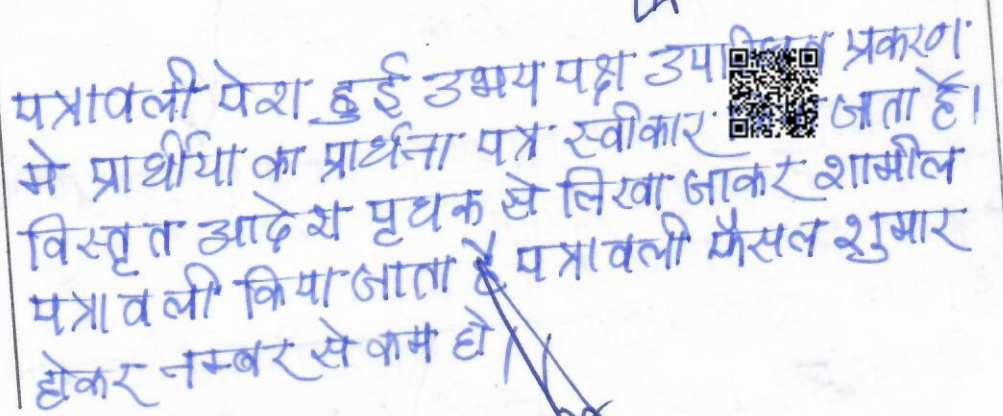 पत्रावली पेश हुई उभय पक्ष प्रकरण
मे प्रार्थीया का प्रार्थना पत्र स्वीकार जाता है।
विस्तृत आदेश पृथक से लिखा जाकर शामील
पत्रावली किया जाता है पत्रावली फैसल शुमार
होकर नम्बर से कम हो।